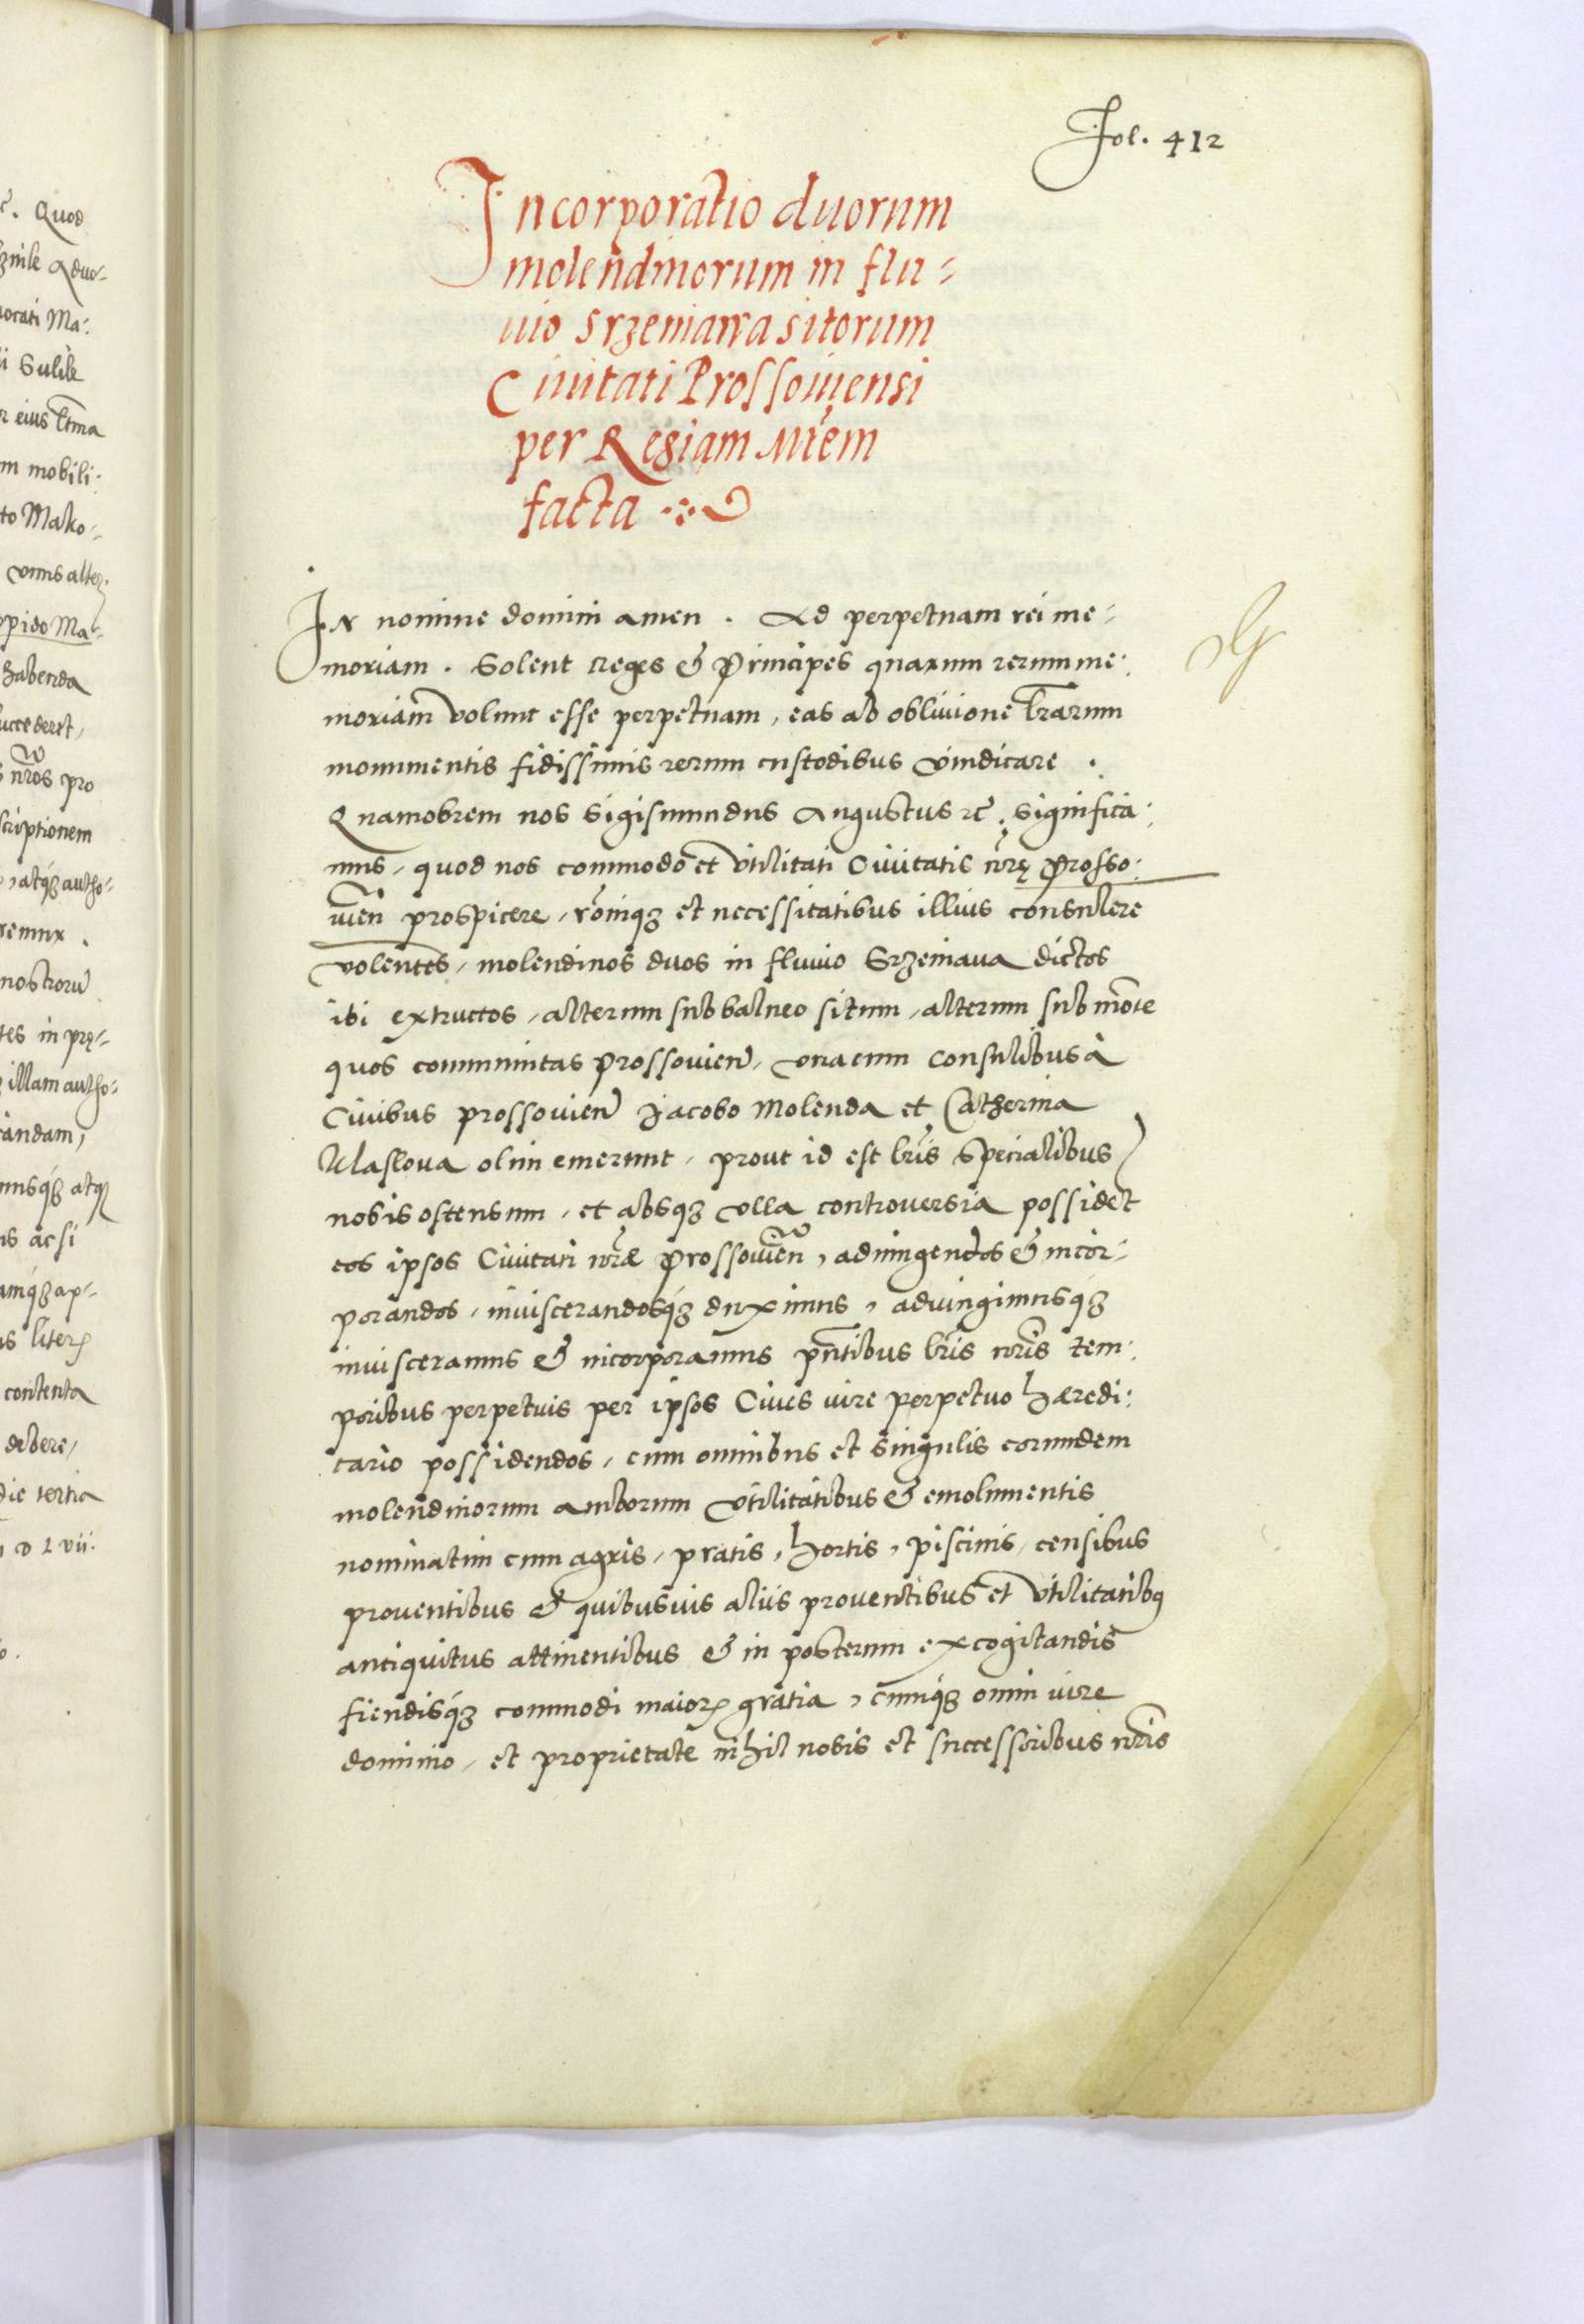 Fol. 412
Incorporatio duorum
molendinorum in flu-
uio Srzeniawa sitorum
Ciuitati Prossouiensi
per Regiam Mtem
facta
In nomine domini amen. Ad perpetuam rei me-
moriam. Solent reges & Principes quarum rerum me:
moriam volunt esse perpetuam, eas ab obliuione lrarum
monumentis fidissimis rerum custodibus vindicare.
Quamobrem nos Sigismundus Augustus etc. significa:
mus, quod nos commodo et vtilitati Ciuitatis nrę Prosso:
uien prospicere, roniq3 et necessitatibus illius consulere
volentes, molendinos duos in fluuio Srzeniaua dictos
ibi extructos, alterum sub balneo situm, alterum sub monte
quos communitas Prossouien, vnacum consulibus à
Ciuibus prossouien Jacobo Molenda et Catherina
Maslova olim emerunt, prout id est lris specialibus
nobis ostensum, et absq3 vlla controuersia possidet
eos ipsos Ciuitati nrae Prossouien, adiungendos & incor-
porandos, inuiscerandosq3 duximus, adiungimusq3
inuisceramus & incorporamus pntibus lris nris tem:
poribus perpetuis per ipsos Ciues iure perpetuo haeredi:
tario possidendos, cum omnibus et singulis eorundem
molendinorum amborum vtilitatibus & emolumentis
nominatim cum agris, pratis, hortis, piscinis, censibus
prouentibus & quibusuis aliis prouentibus et vtilitatibus
antiquitus attinentibus & in posterum excogitandis
fiendisq3 commodi maioris gratia, cumq3 omni iure
dominio, et proprietate nihil nobis et successoribus nris